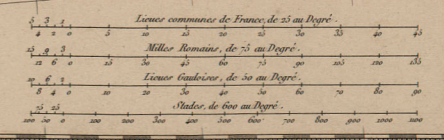 Lieues communes de France, de 25 au Degré.
5 3 1
4 2 0 5 10 15 20 25 30 35 40 45
Milles Romains, de 75 au Degré.
15 9 3
12 6 0 15 30 45 60 75 90 105 120 135
Lieues Gauloises, de 50 au Degré.
10 6 2
8 4 0 10 20 30 40 50 60 70 80 90
Stades, de 600 au Degré.
75 25
100 50 0 100 200 300 400 500 600 700 800 900 1000 1100